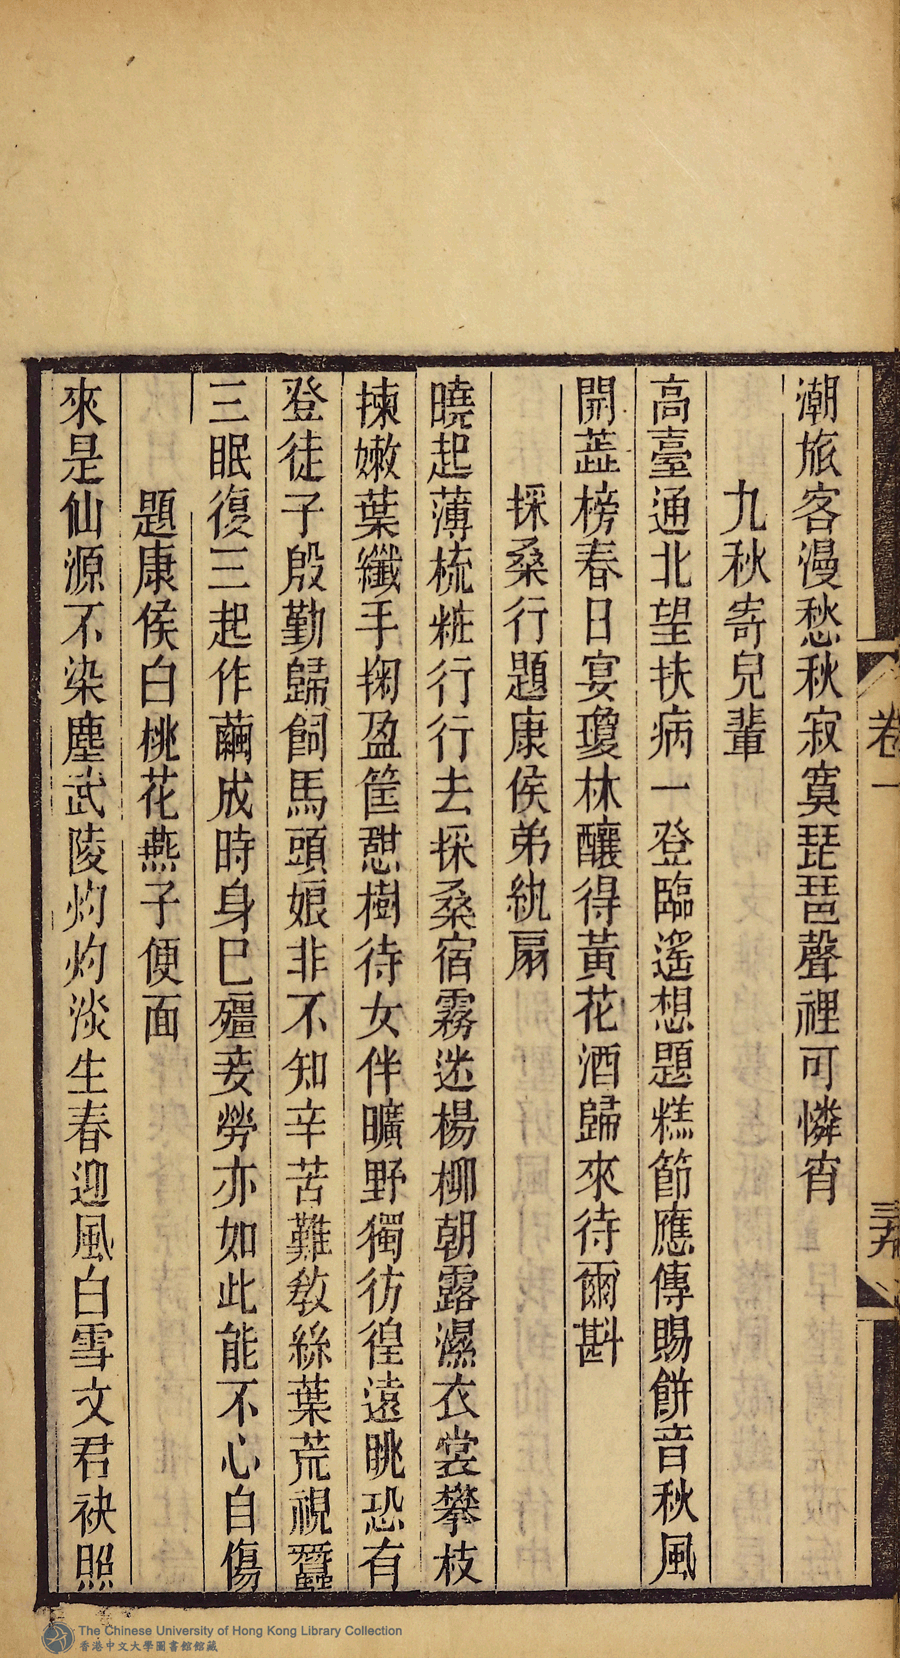 潮旅客漫愁秋寂寞琵琶聲裡可憐宵
九秋寄兒輩
高臺通北望扶病一登臨遙想題糕節應傳賜餅音秋風
開蕋榜春日宴瓊林釀得黃花酒歸來待爾斟
採桑行題康侯弟紈扇
曉起薄梳粧行行去採桑宿霧迷楊柳朝露濕衣裳攀枝
揀嫩葉纖手掬盈筐憇樹待女伴曠野獨彷徨遠眺恐有
登徒子殷勤歸飼馬頭娘非不知辛苦難敎絲葉荒視蠶
三眠復三起作繭成時身巳殭妾勞亦如此能不心自傷
題康侯白桃花燕子便面
來是仙源不染塵武陵灼灼淡生春迎風白雪文君袂照
卷一
三九
The Chinese University of Hong Kong Library Collection
香港中文大學圖書館館藏